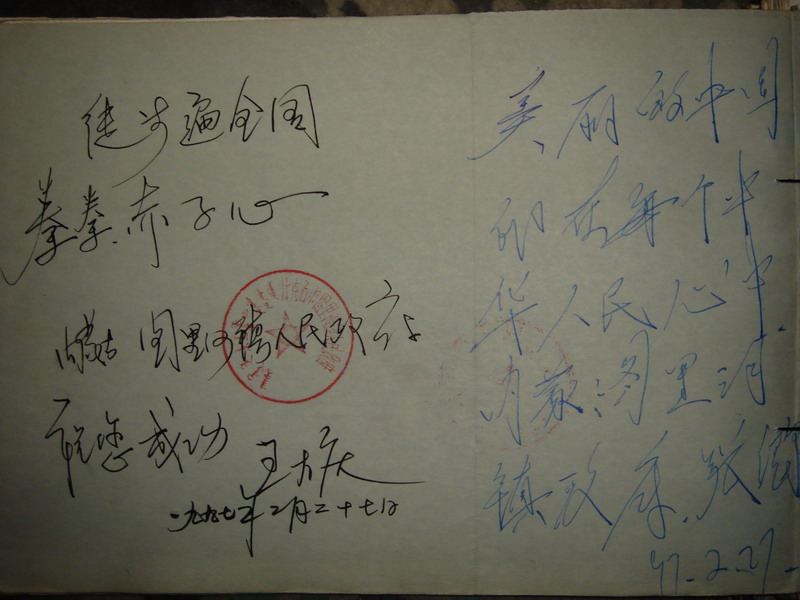 徒步遍全国
拳拳赤子心
内蒙古图里河镇人民政府
祝您成功
王大庆
一九九七年二月二十七日
美丽的中国
印在每个中
华人民心中.
内蒙图里河
镇政府.张
97-2-27